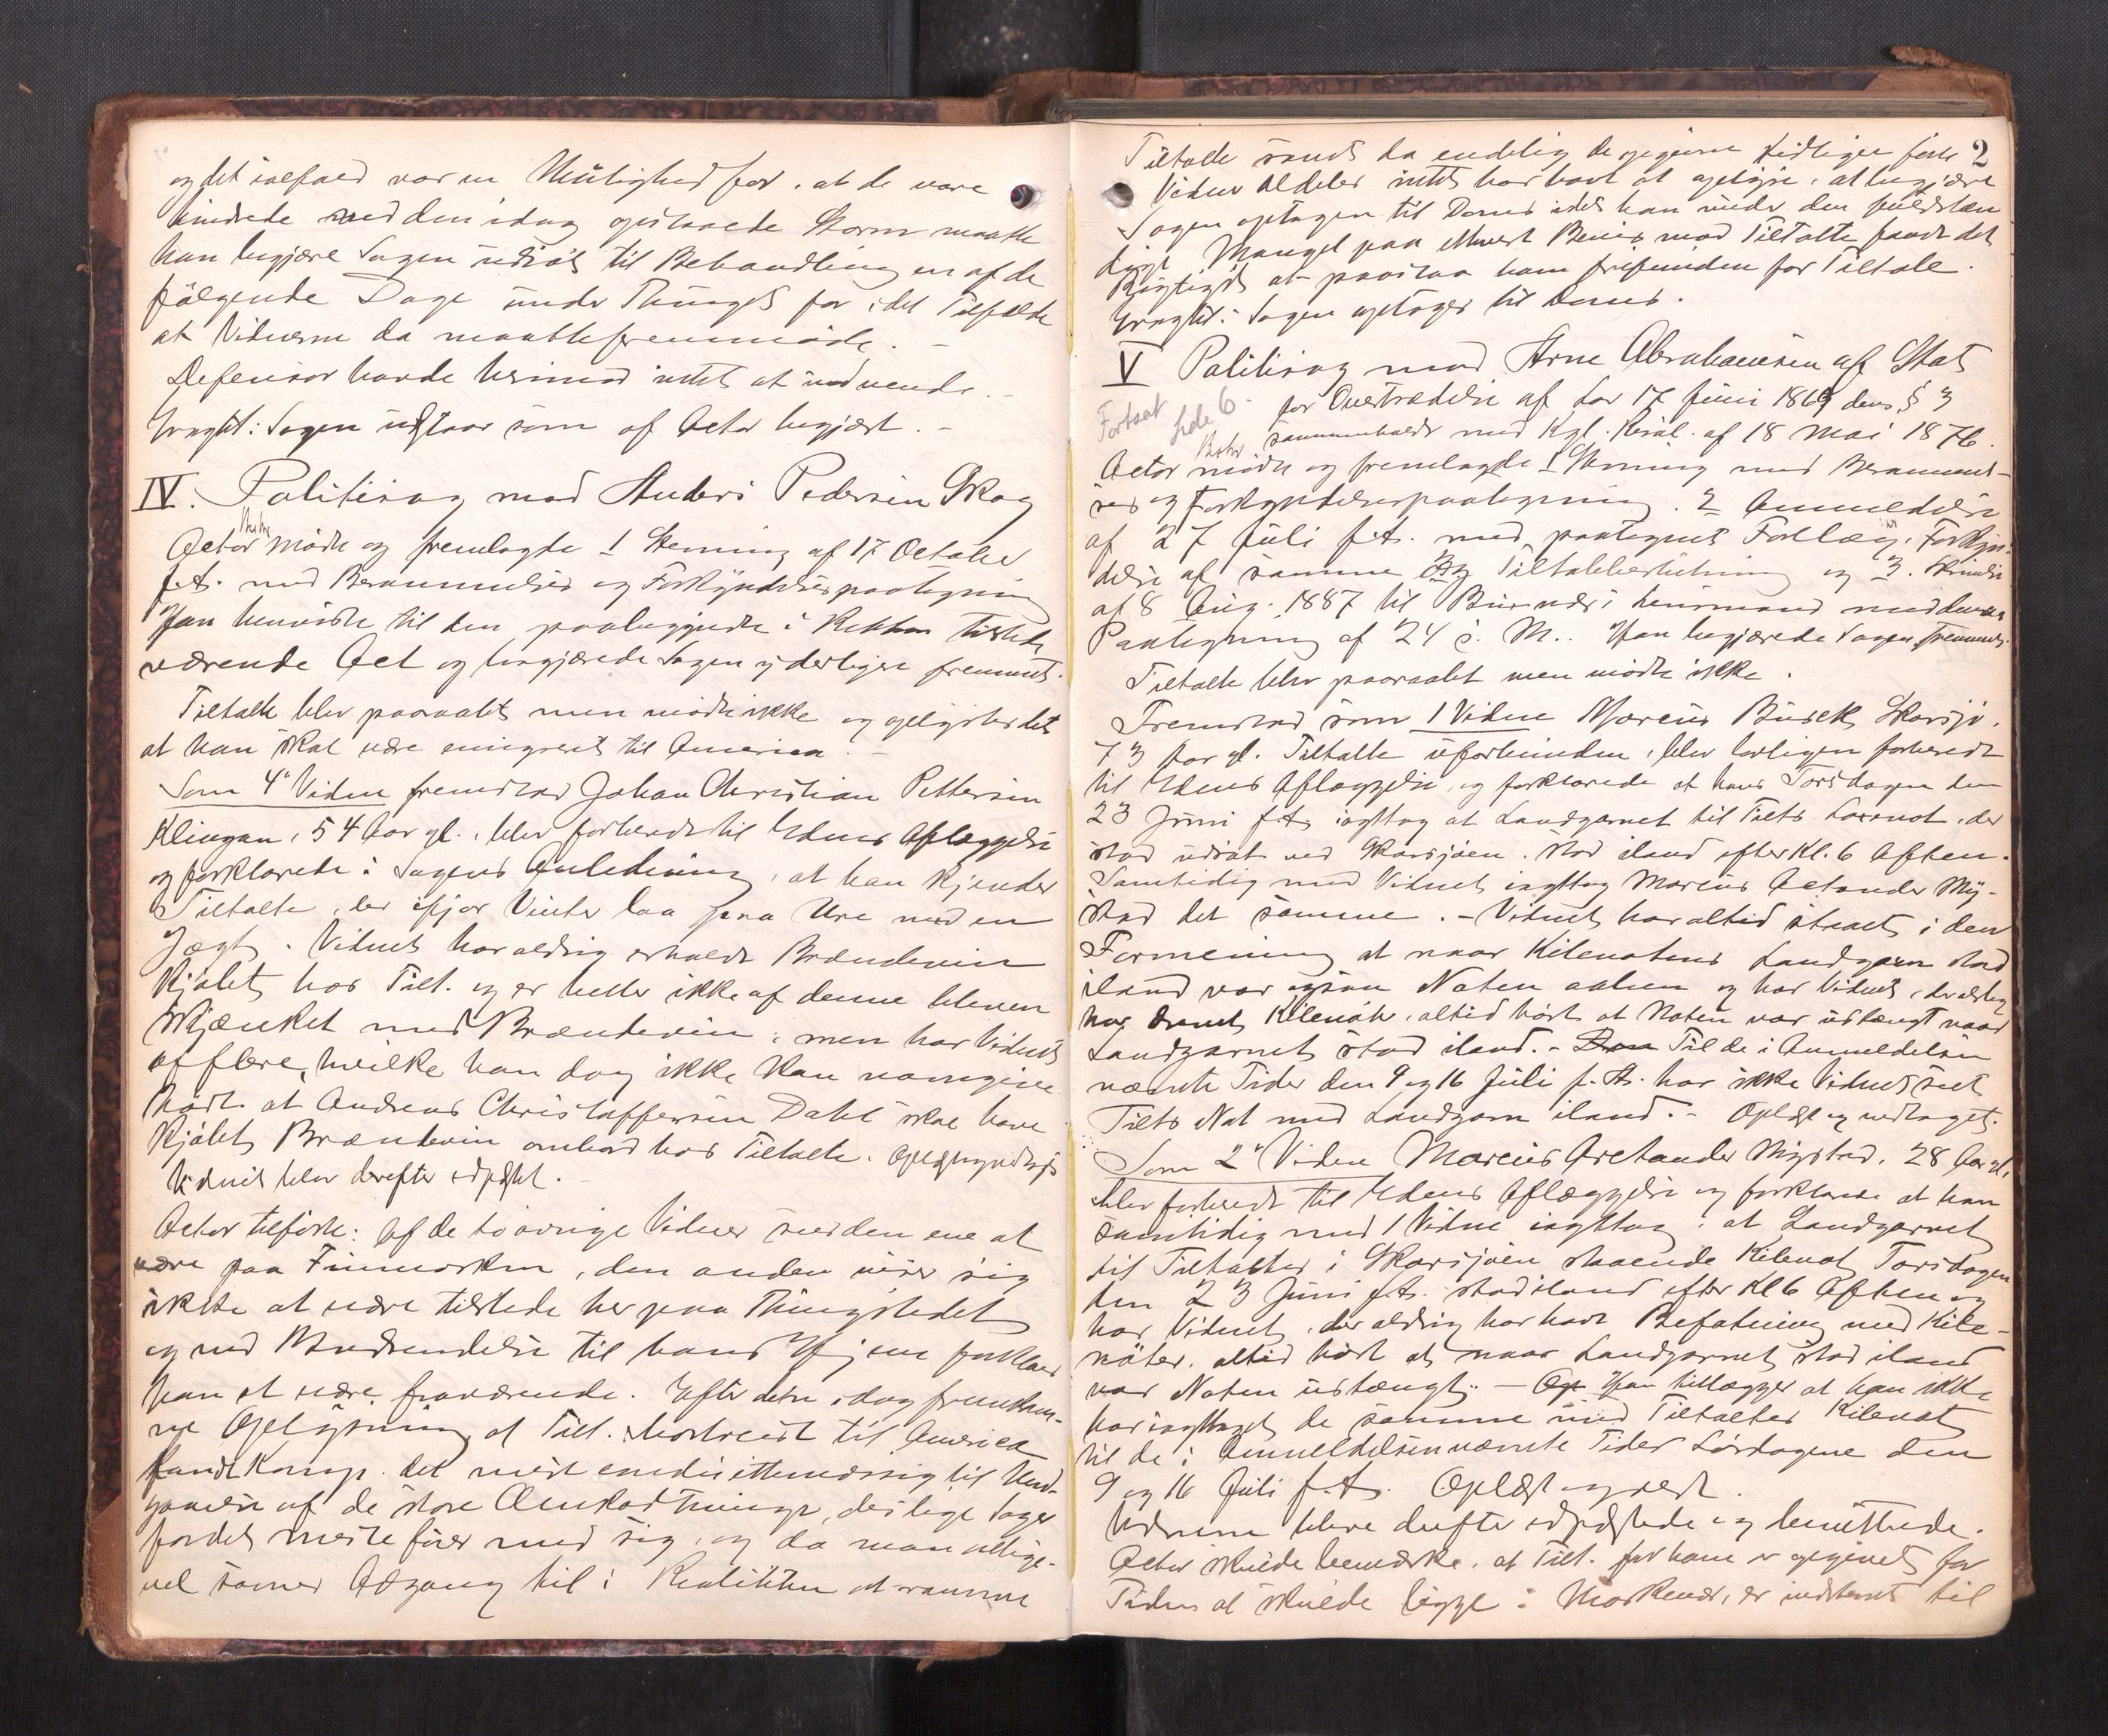 og det ialfald var en Mulighed for, at de vare
hindrede ved den idag opstaaede Storm maatte
han begjære Sagen udsat til Behandling en af de
følgende Dage under Thinget for i det Tilfælde
at Vidnerne da maatte fremmøde. –
Defensor havde herimod intet at indvende. –
Eragtet: Sagen udstaar som af Actor begjært. –
IV. Politisag mod Anders Pedersen Skog
Actor mødte og fremlagde 1 Stevning af 17 Octobr
f.A. med Berammelses og Forkyndelsespaategning
Han henviste til den paaberaabte i Retten tilstede
værende Act og begjærede Sagen yderligere fremmet.
Tiltalte blev paaraabt men mødte ikke og oplystes det
at han skal være emigreret til America. –
Som 4de Vidne fremstod Johan Christian Pettersen
Klingan, 54 Aar gl., blev forberedt til Edens Aflæggelse
og forklarede i Sagens Anledning, at han kjender
Tiltalte, der ifjor Vinter laa paa Ure med en
Jægt. Vidnet har aldrig erholdt Brændevin
kjøbt hos Tilt. og er heller ikke af denne bleven
skjænket med Brændevin, men har Vidnet
af flere, hvilke han dog ikke kan navngive
hørt at Andreas Christoffersen Dahl skal have
kjøbt Brændevin ombord hos Tiltalte. Oplæst og vedtaget
Vidnet blev derefter edfæstet. –
Actor tilførte: Af de to øvrige Vidner sees den ene at
være paa Finmarken, den anden viser sig
ikke at være tilstede her paa Thingstedet
og ved Udsendelse til hans Hjem forklares
han at være fraværende. Efter den idag fremkom-
ne Oplysning at Tilt. er bortreist til America
fandt Komp. det mest hensigtsmæssig til Und-
gaaelse af de store Omkostninger, deslige Sager
fordet meste fører med sig, og da man allige-
vel savner Adgang til i Realiteten at ramme
2
Tiltalte samt da endelig de opgivne tidligere førte
Vidner aldeles intet har havt at oplyse, at begjære
Sagen optagen til Doms idet han under den fuldstæn
dige Mangel paa ethvert Bevis mod Tiltalte fandt det
Rigtigst at paastaa ham frifunden for Tiltale.
Eragtet: Sagen optages til Doms.
V Politisag mod Arne Abrahamsen af Stat
Fortsat Side 6.
for Overtrædelse af Lov 17 Juni 1869 dens § 3
sammenholdt med Kgl. Resol. af 18 Mai 1876.
Actor mødte og fremlagde 1 Stevning med Berammel-
ses og Forkyndelsespaategning. 2 Anmeldelse
af 27 Juli f.A. med paategnet Forelæg, Forkyn-
delse af samme og Tiltalebeslutning og 3. Skrivelse
af 8 Aug. 1887 til Buksnæs Lensmand med dennes
Paategning af 24 s. M.. Han begjærede Sagen fremmet.
Tiltalte blev paaraabt men mødte ikke.
Fremstod som 1 Vidne Marcus Busch Skarsjø,
73 Aar gl. Tiltalte uforbunden, blev lovligen forberedt
til Edens Aflæggelse, og forklarede at hans Torsdagen den
23 Juni f.A. iagttog at Landgarnet til Tilts Laxenot, der
stod udsat ved Skarsjøen, stod iland efter Kl. 6 Aften.
Samtidig med Vidnet iagttog Marcus Aetander My-
stad det samme. – Vidnet har altid staaet i den
Formening at naar Kilenotens Landgarn stod
iland var ogsaa Noten aaben og har Vidnet, der aldrig
har drevet Kilenot, altid hørt at Noten var ustængt naar
Landgarnet stod iland. – Til de i Anmeldelsen
nævnte Tider den 9 og 16 Juli f.A. har ikke Vidnet seet
Tilts Not med Landgarn iland. – Oplæst og vedtaget.
Som 2det Vidne Marcus Aretander Mystad, 28 Aar gl,
blev forberedt til Edens Aflæggelse og forklarede at han
samtidig med 1 Vidne iagttog, at Landgarnet
til Tiltaltes i Skarsjøen staaende Kilenot Torsdagen
den 23 Juni f.A. stod iland efter Kl 6 Aften og
har Vidnet, der aldrig har havt Befatning med Kile-
nøter, altid hørt at naar Landgarnet stod iland
var Noten ustængt. – Han tillægger at han ikke
har iagttaget de samme med Tiltaltes Kilenot
til de i Anmeldelsen nævnte Tider Lørdagene den
9 og 16 Juli f.A. Oplæst og vedt.
Vidnerne bleve derefter edfæstede og demitterede.
Actor skulde bemærke, at Tilt. for ham er opgivet for
Tiden at skulde ligge i Moskenæs, er indstevnt til